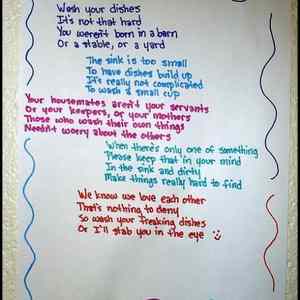 Wash your dishes
It's not that hard
You weren't born in a barn
Or a stable, or a yard
The sink is too small
To have dishes build up
It's really not complicated
To wash a small cup
Your housemates aren't your servants
Or your keepers, or your mothers
Those who wash their own things
Needn't worry about the others
When there's only one of something
Please keep that in your mind
In the sink and dirty
Make things really hard to find
We know we love each other
That's nothing to deny
So wash your freaking dishes
Or I'll stab you in the eye